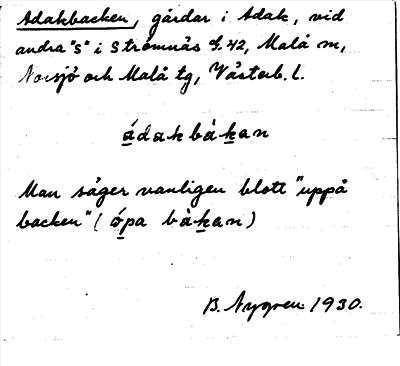 Adakbacken, gårdar i Adak, vid
andra "s" i Strömnäs G. 42, Malå m,
Norsjö och Malå tg, Västerb. l.
ádakbàkan
Man säger vanligen blott "uppå
backen" (ópa bàkan)
B. Nygren 1930.